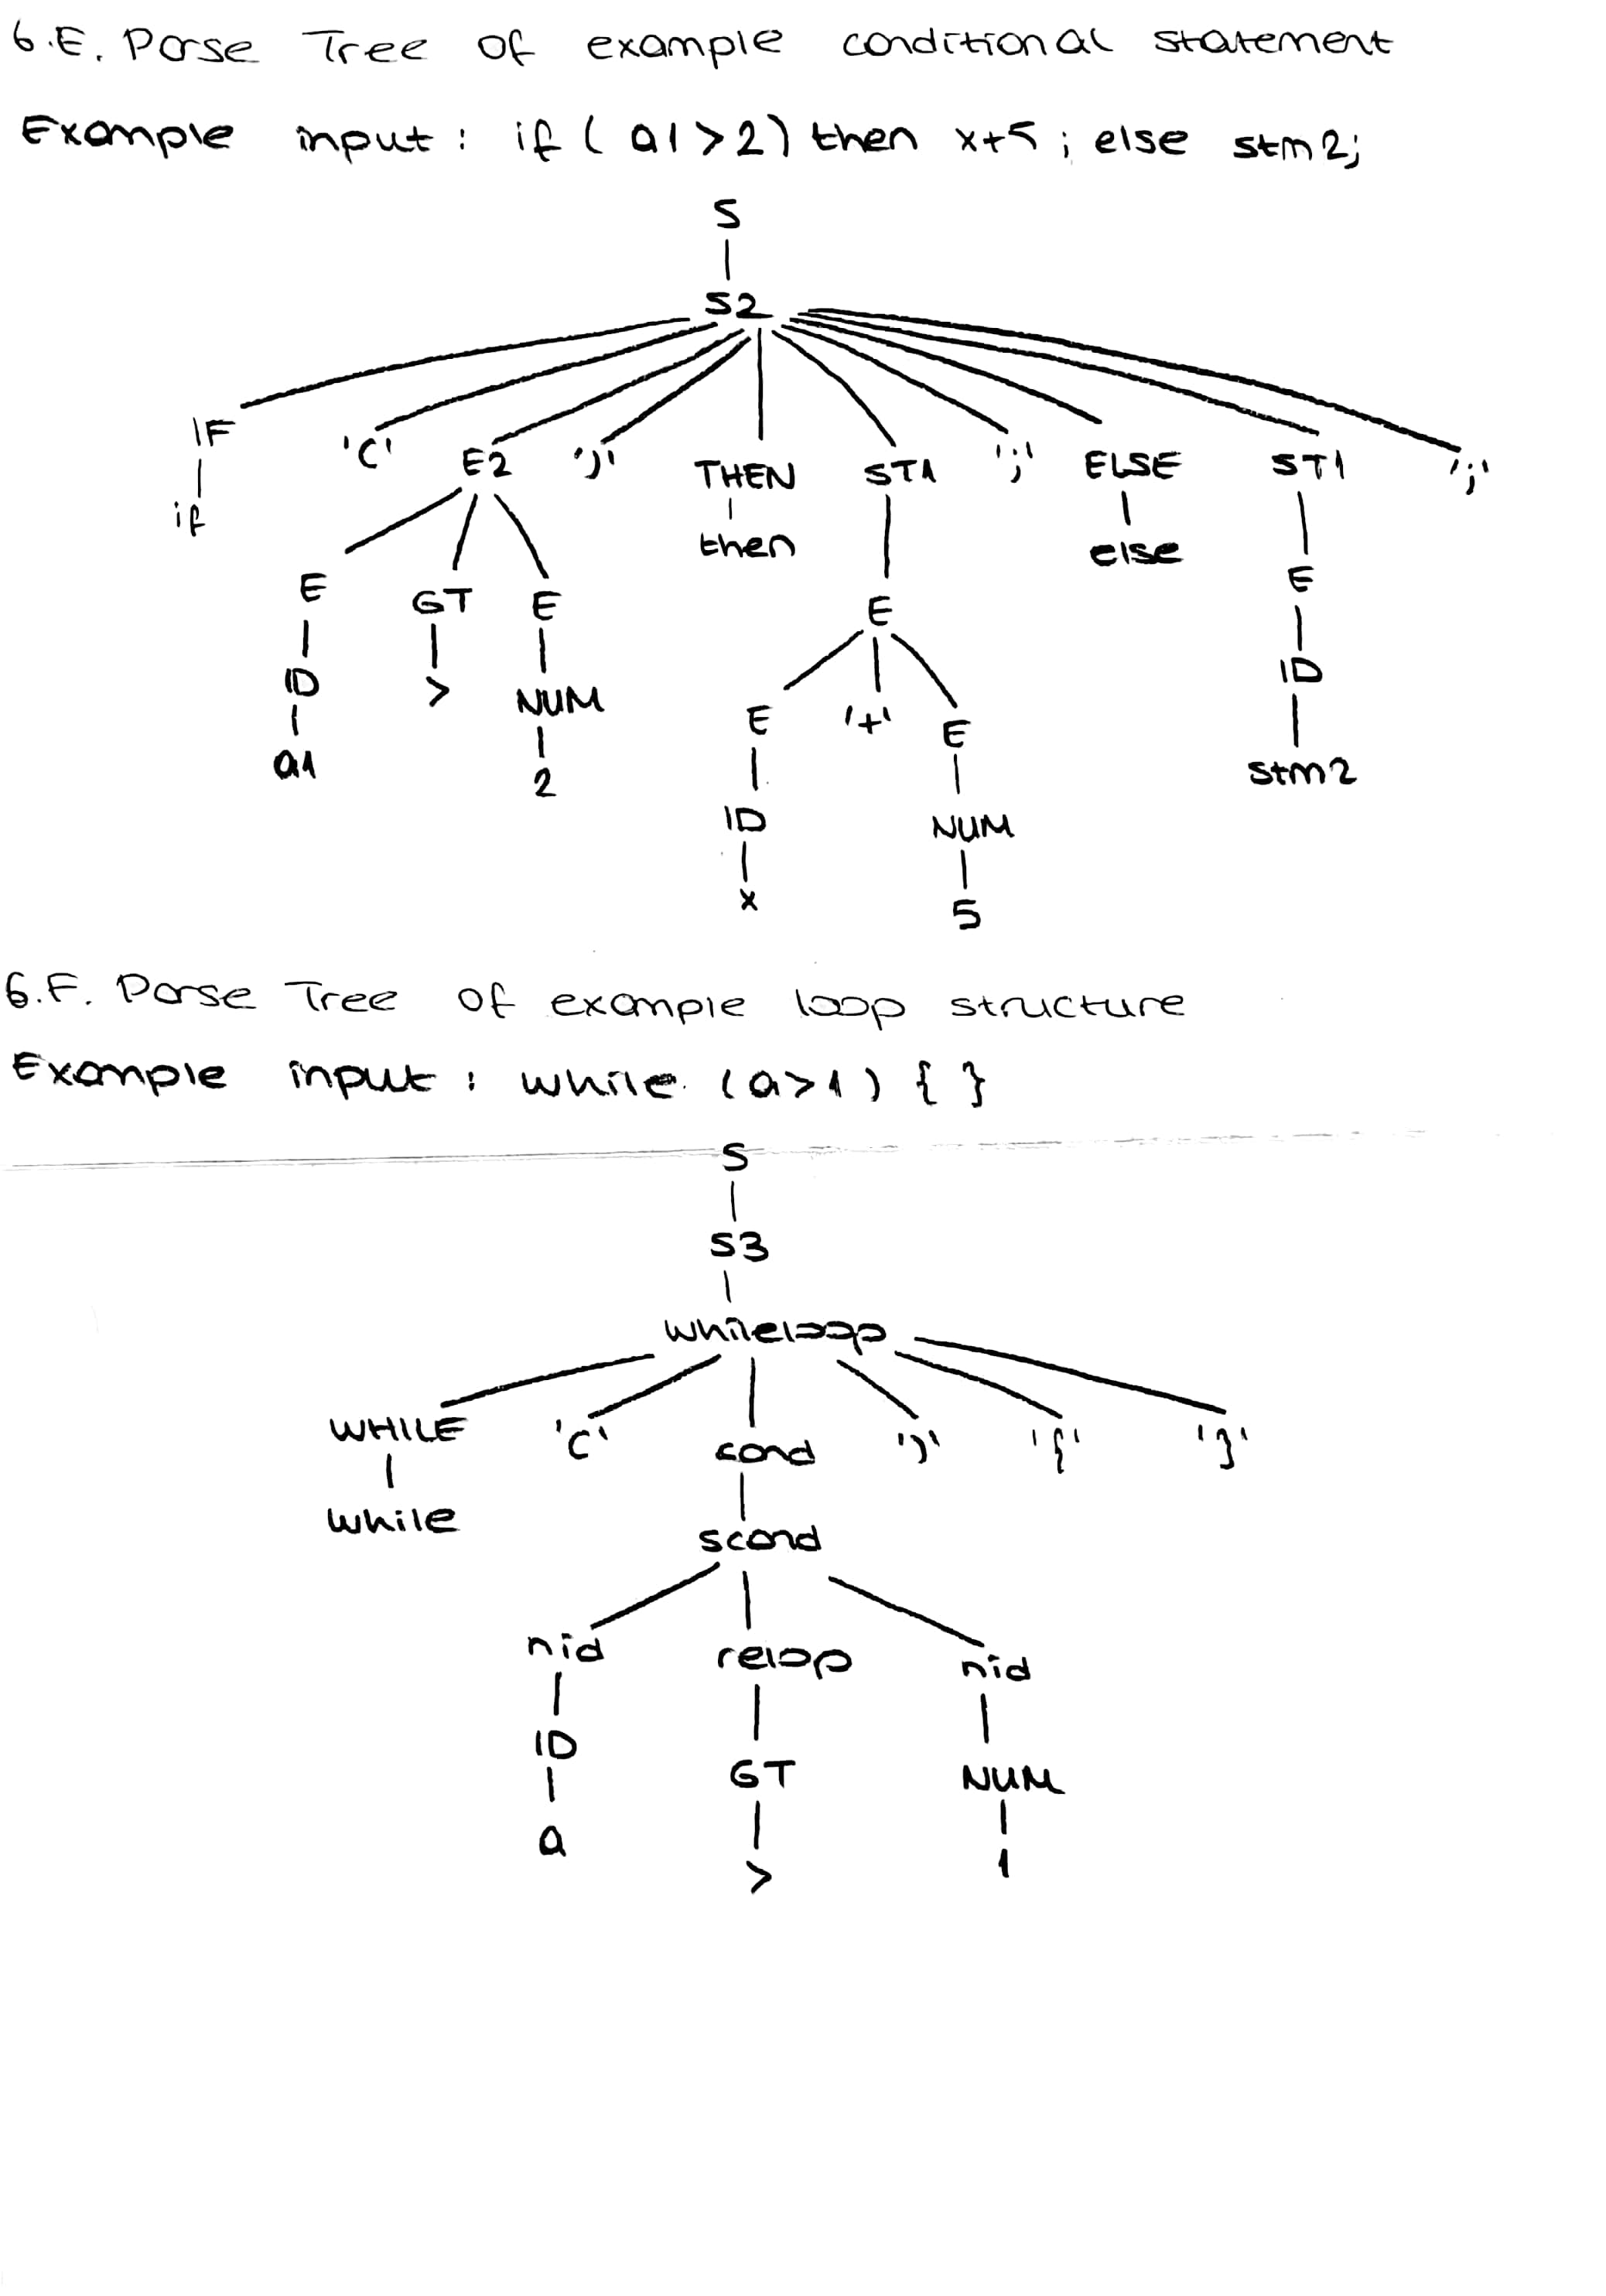 6.E. Parse Tree Of example conditional statement
Example input : if ( a1 > 2 ) then x+5 ; else stm2;
S
S2
IF '(' E2 ')' THEN ST1 ';' ELSE ST1 ';'
if then else
E GT E E E
ID > NUM E '+' E ID
a1 2 ID NUM stm2
x 5
6.F. Parse Tree Of example loop structure
Example input : while (a>1) { }
S
S3
whileloop
WHILE '(' cond ')' '{' '}'
while scond
nid relop nid
ID GT NUM
a > 1